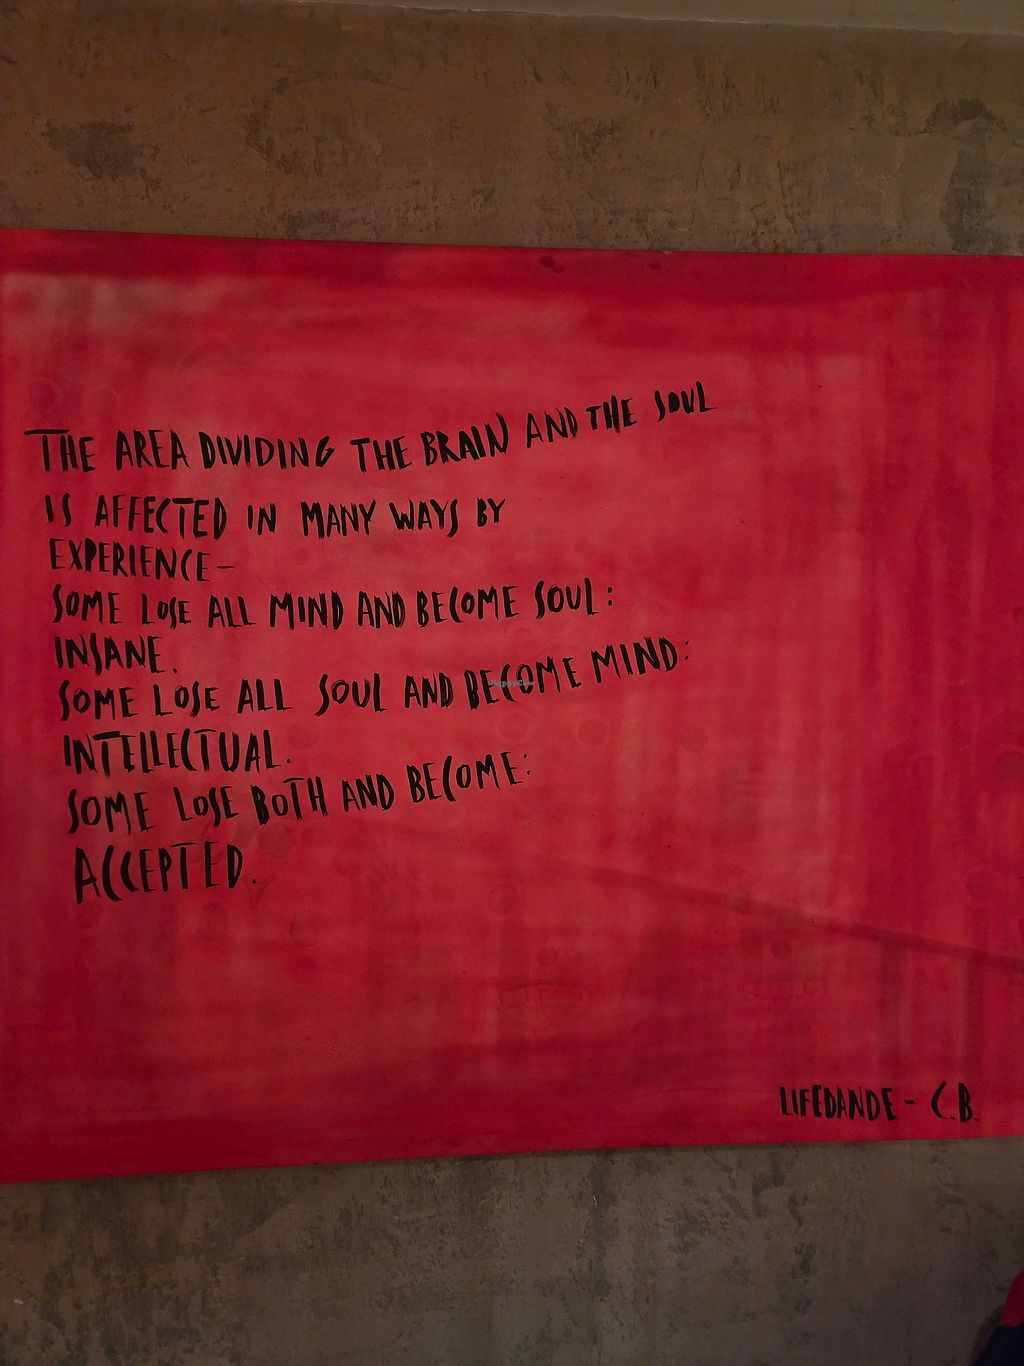 THE AREA DIVIDING THE BRAIN AND THE SOUL
IS AFFECTED IN MANY WAYS BY
EXPERIENCE-
SOME LOSE ALL MIND AND BECOME SOUL:
INSANE.
SOME LOSE ALL SOUL AND BECOME MIND:
INTELLECTUAL.
SOME LOSE BOTH AND BECOME:
ACCEPTED.
LIFEDANDE - C.B.
HappyCow